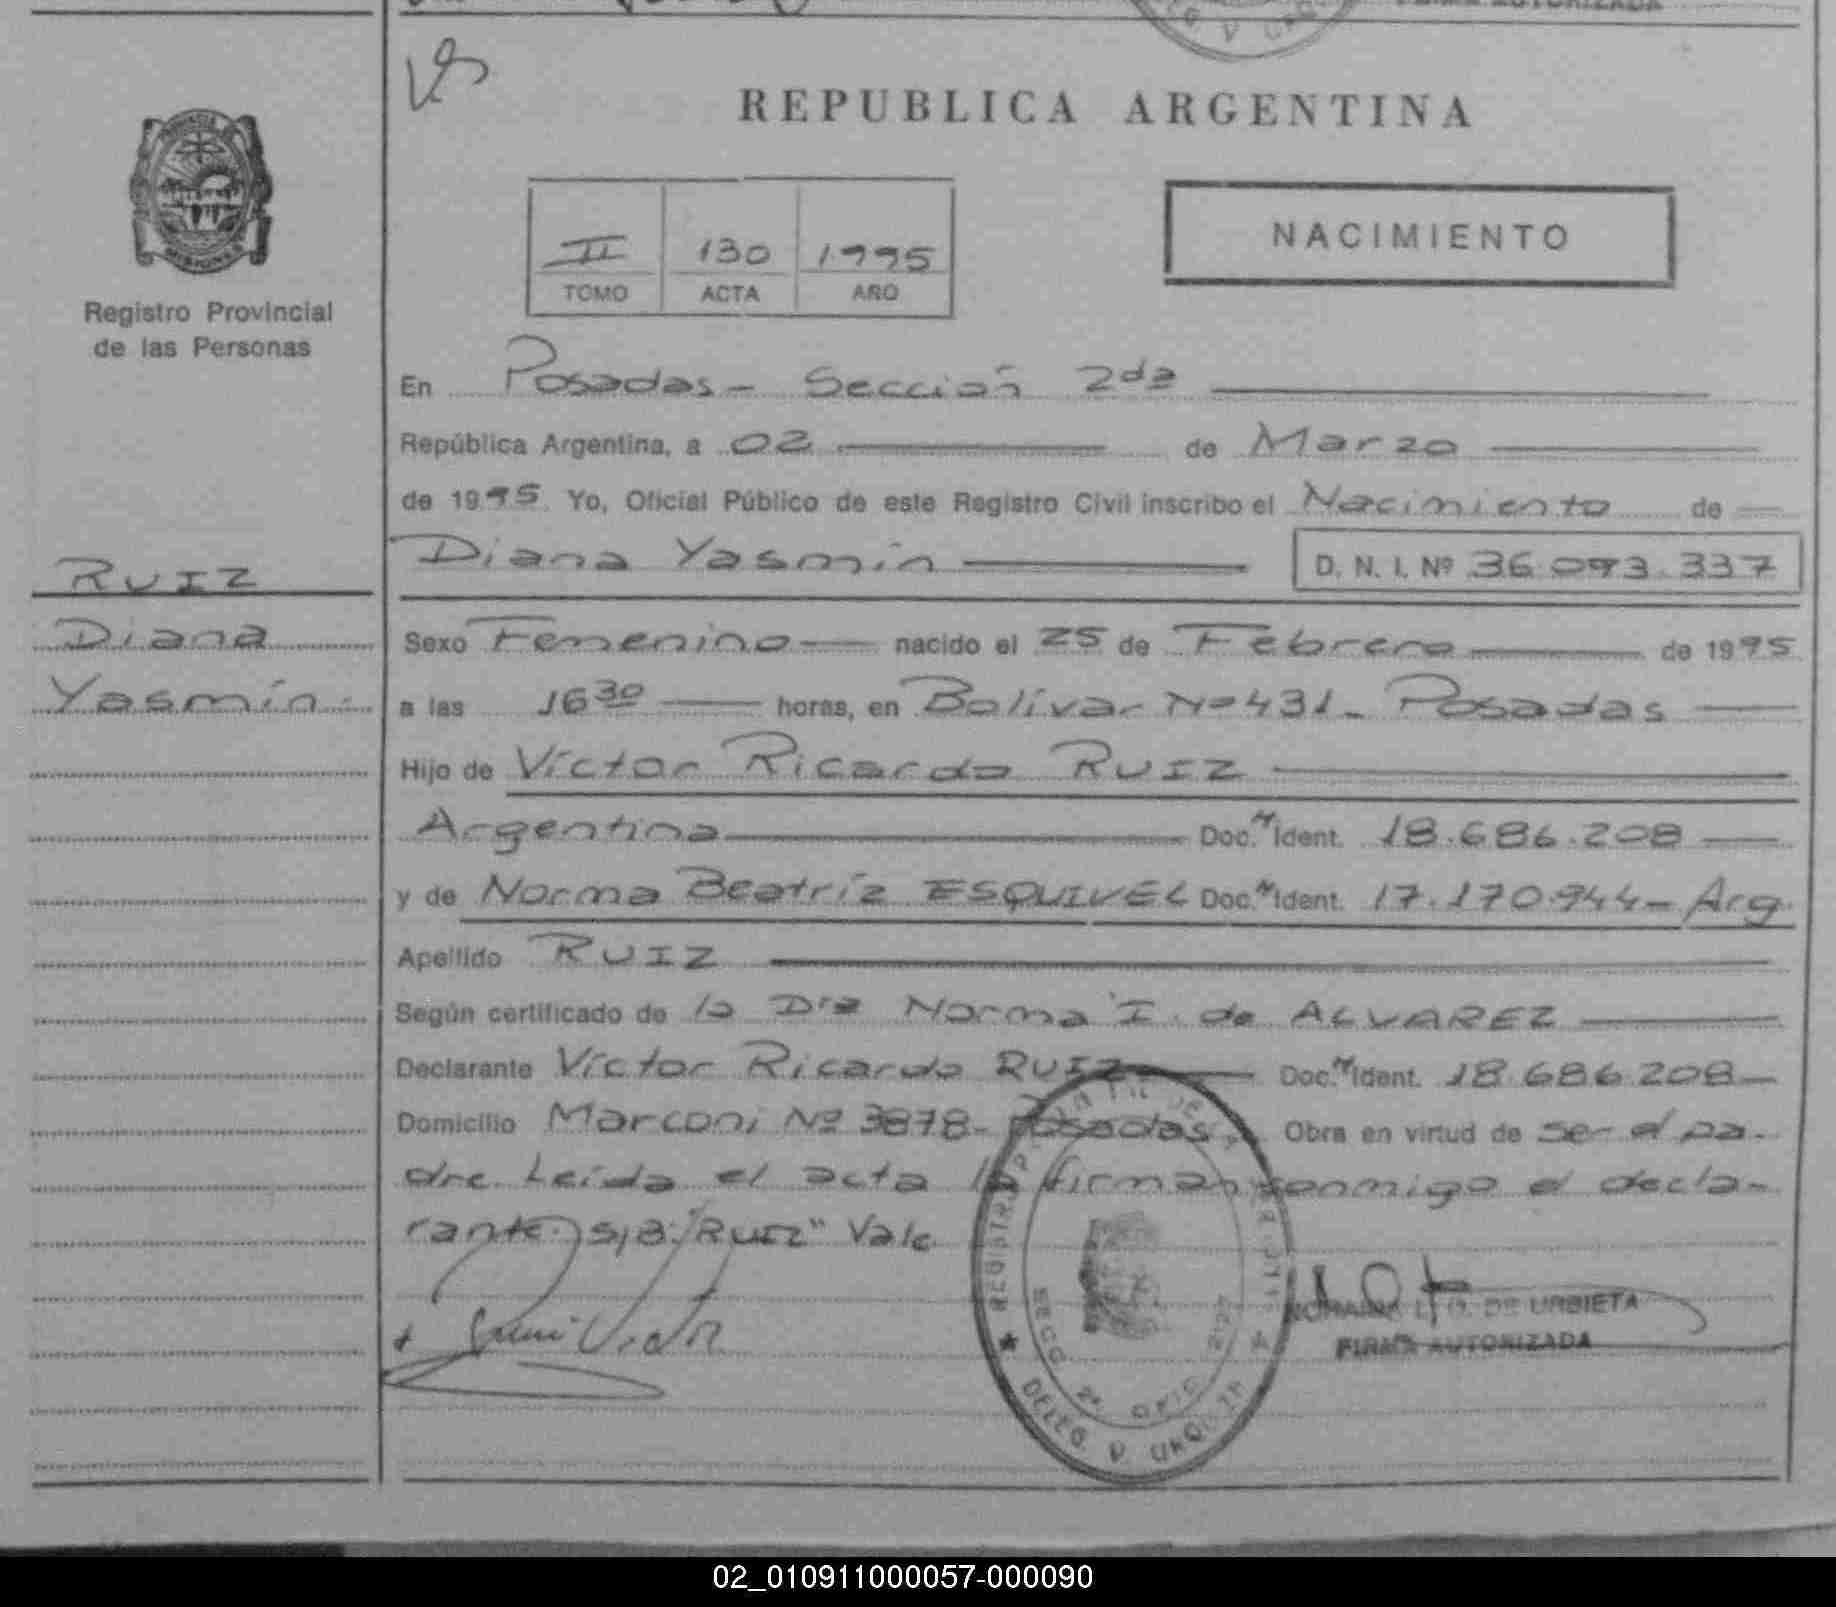 REPUBLICA ARGENTINA
II 130 1995
TOMO ACTA AÑO
NACIMIENTO
Registro Provincial
de las Personas
En Posadas - Sección 2da
República Argentina, a 02 de Marzo
de 1995. Yo, Oficial Público de este Registro Civil inscribo el Nacimiento de
Diana Yasmín D. N. I. Nº 36.093.337
RUIZ
Diana
Yasmín.
Sexo Femenino nacido el 25 de Febrero de 1995
a las 16 30 horas, en Bolívar Nº 431 - Posadas
Hijo de Víctor Ricardo RUIZ
Argentina Doc. Ident. 18.686.208
y de Norma Beatríz ESQUIVEL Doc. Ident. 17.170.944 - Arg.
Apellido RUIZ
Según certificado de la Dra Norma I. de ALVAREZ
Declarante Víctor Ricardo RUIZ Doc. Ident. 18.686.208
Domicilio Marconi Nº 3878 - Posadas. Obra en virtud de ser el pa-
dre. Leída el acta la firman conmigo el decla-
rante. S/B: "RUIZ" Vale
DE URBIETA
FIRMA AUTORIZADA
DELEG. V. URQUIZA
02_010911000057-000090